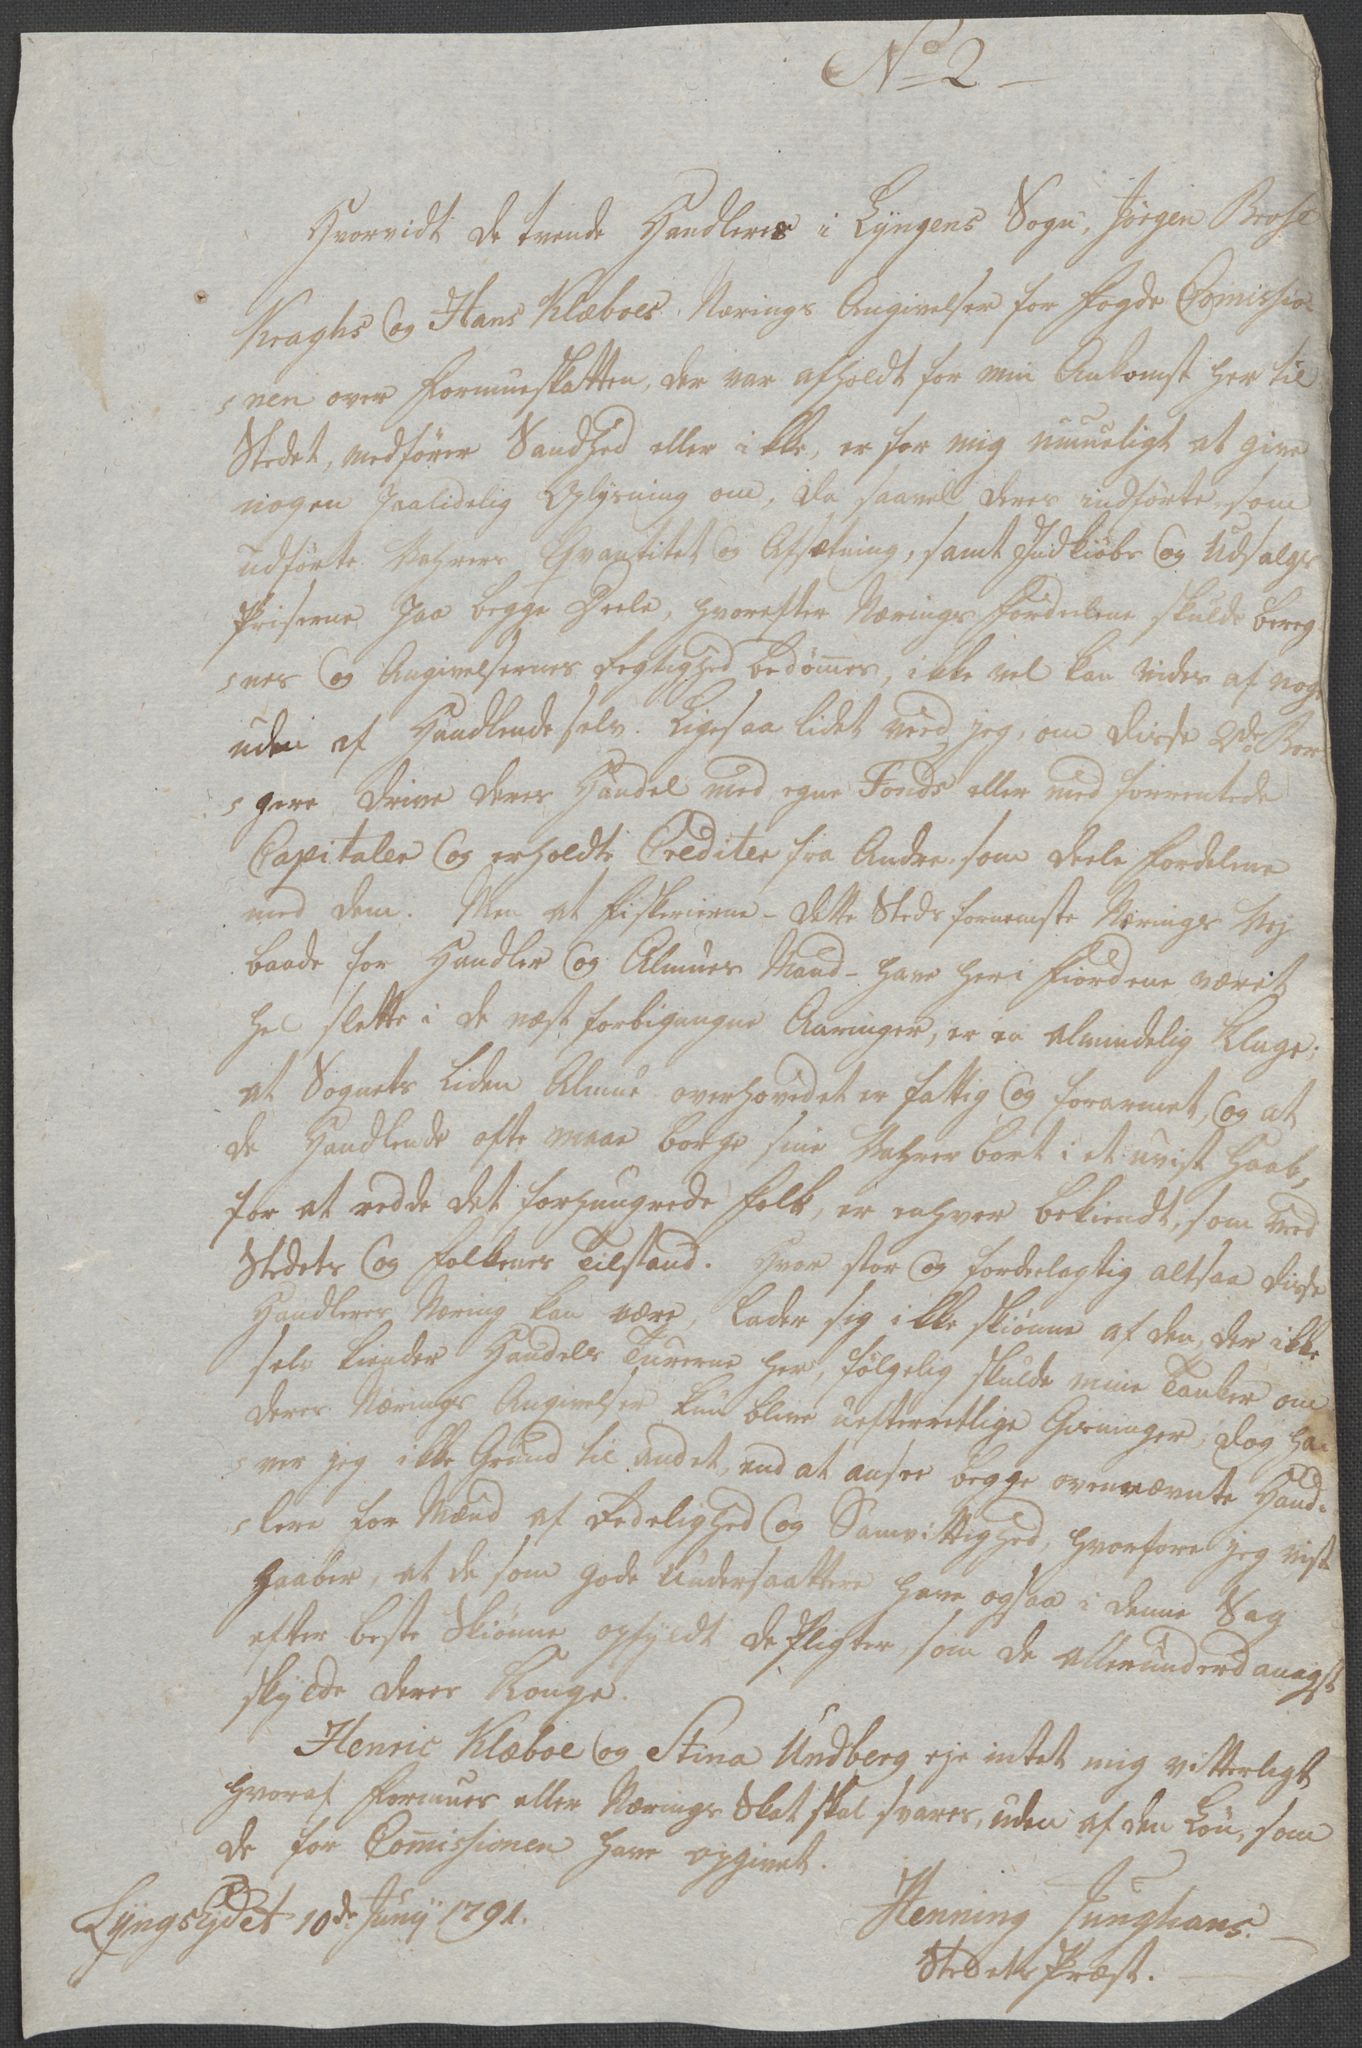 No 2
Hvorvidt de tvende Handlere i Lyngens Sogn, Jörgen
Kraghs og Hans Klæboes Nærings Angivelser for Fogde Comissio-
nen over Formueskatten, der var afholdt for min Ankomst her til
Stedet, medförer Sandhed eller ikke, er for mig umueligt at give
nogen paalidelig Oplysning om, da saavel deres indförte som
udförte Vahrers Qvantitet og Afsætning, samt Indkiöbs og Udsalgs
Priserne paa begge Deele, hvorefter Nærings Fordeelene skulde bereg-
nes og Angivelsernes Rigtighed bedömmes, ikke vel kan vides af nogen
uden af Handlende selv. Ligesaa lidet veed jeg, om disse 2de Bor-
gere drive deres Handel med egne Fonds eller med forrentede
Capitaler og erholdte Crediter fra Andre som deele Fordelene
med dem. Men at Fiskerierne - dette Steds fornemste Nærings Vej
baade for Handler og Almues Mand - have her i Fiordene været
hel slette i de næst forbigangne Aaringer, er en almindelig Klage;
at Sognets liden Almue overhovedet er fattig og forarmet, og at
de Handlende ofte maae borge sine Vahrer bort i et uvist Haab,
for at redde det forhungrede Folk, er enhver bekiendt, som veed
Stedets og Folkenes Tilstand. Hvor stor og fordeelagtig altsaa disse
Handleres Næring kan være, lader sig ikke skiönne af den, der ikke
selv kiender Handels Turerne her, fölgelig skulde mine Tanker om
deres Nærings Angivelser kun blive uefterretlige Gisninger; dog ha-
ver jeg ikke Grund til andet, end at ansee begge ovennævnte Hand-
lere for Mænd af Redelighed og Samvittighed, hvorfore jeg vist
haaber, at de som gode Undersaattere have ogsaa i denne Sag
efter beste Skiönne opfyldt de Pligter, som de allerunderdanigst
skylde deres Konge.
Henric Klæboe og Stina Undberg eje intet mig vitterligt
hvoraf Formues eller Nærings Skat skal svares, uden af den Lön, som
de for Comissionen have opgivet.
Lyngseydet 10de Junij 1791.
Henning Junghans.
Stedets Præst.